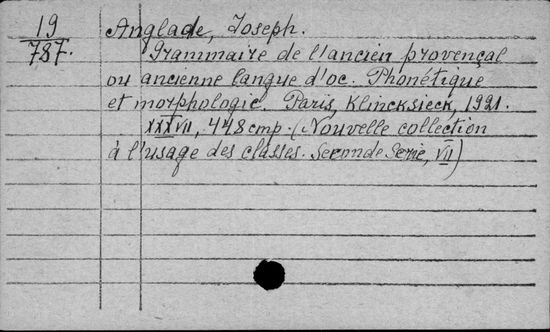 19
787.
Anglade, Joseph.
Grammaire de l'ancien provençal
ou ancienne langue d'oc. Phonétique
et morphologie. Paris, Klincksieck, 1921.
XXXVII, 448 cmp. (Nouvelle collection
à l'usage des classes. Seconde Serie, VII)